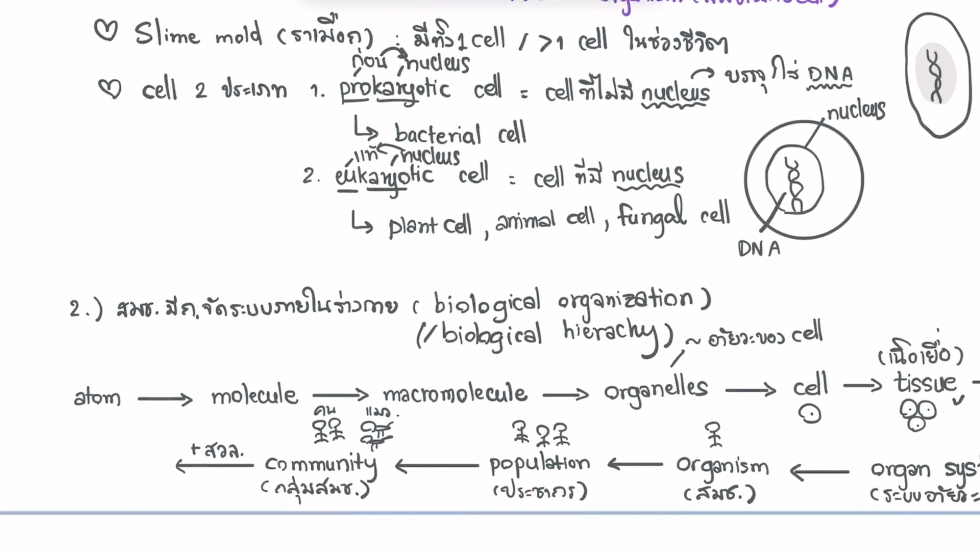 ♡ Slime mold (ราเมือก) : มีทั้ง 1 cell / >1 cell ในช่วงชีวิต
ก่อน nucleus
♡ cell 2 ประเภท 1. prokaryotic cell = cell ที่ไม่มี nucleus → บรรจุไว้ DNA
nucleus
↳ bacterial cell
แท้ nucleus
2. eukaryotic cell = cell ที่มี nucleus
↳ plant cell , animal cell , fungal cell
DNA
2.) สมช. มีก.จัดระบบภายในร่างกาย ( biological organization )
(// biological hierachy)
~ อวัยวะของ cell
(เนื้อเยื่อ)
atom → molecule → macromolecule → organelles → cell → tissue →
คน แมว
+ สวล. ← community ← population ← organism ← organ sys
(กลุ่มสมช.) (ประชากร) (สมช.) (ระบบอวัยวะ